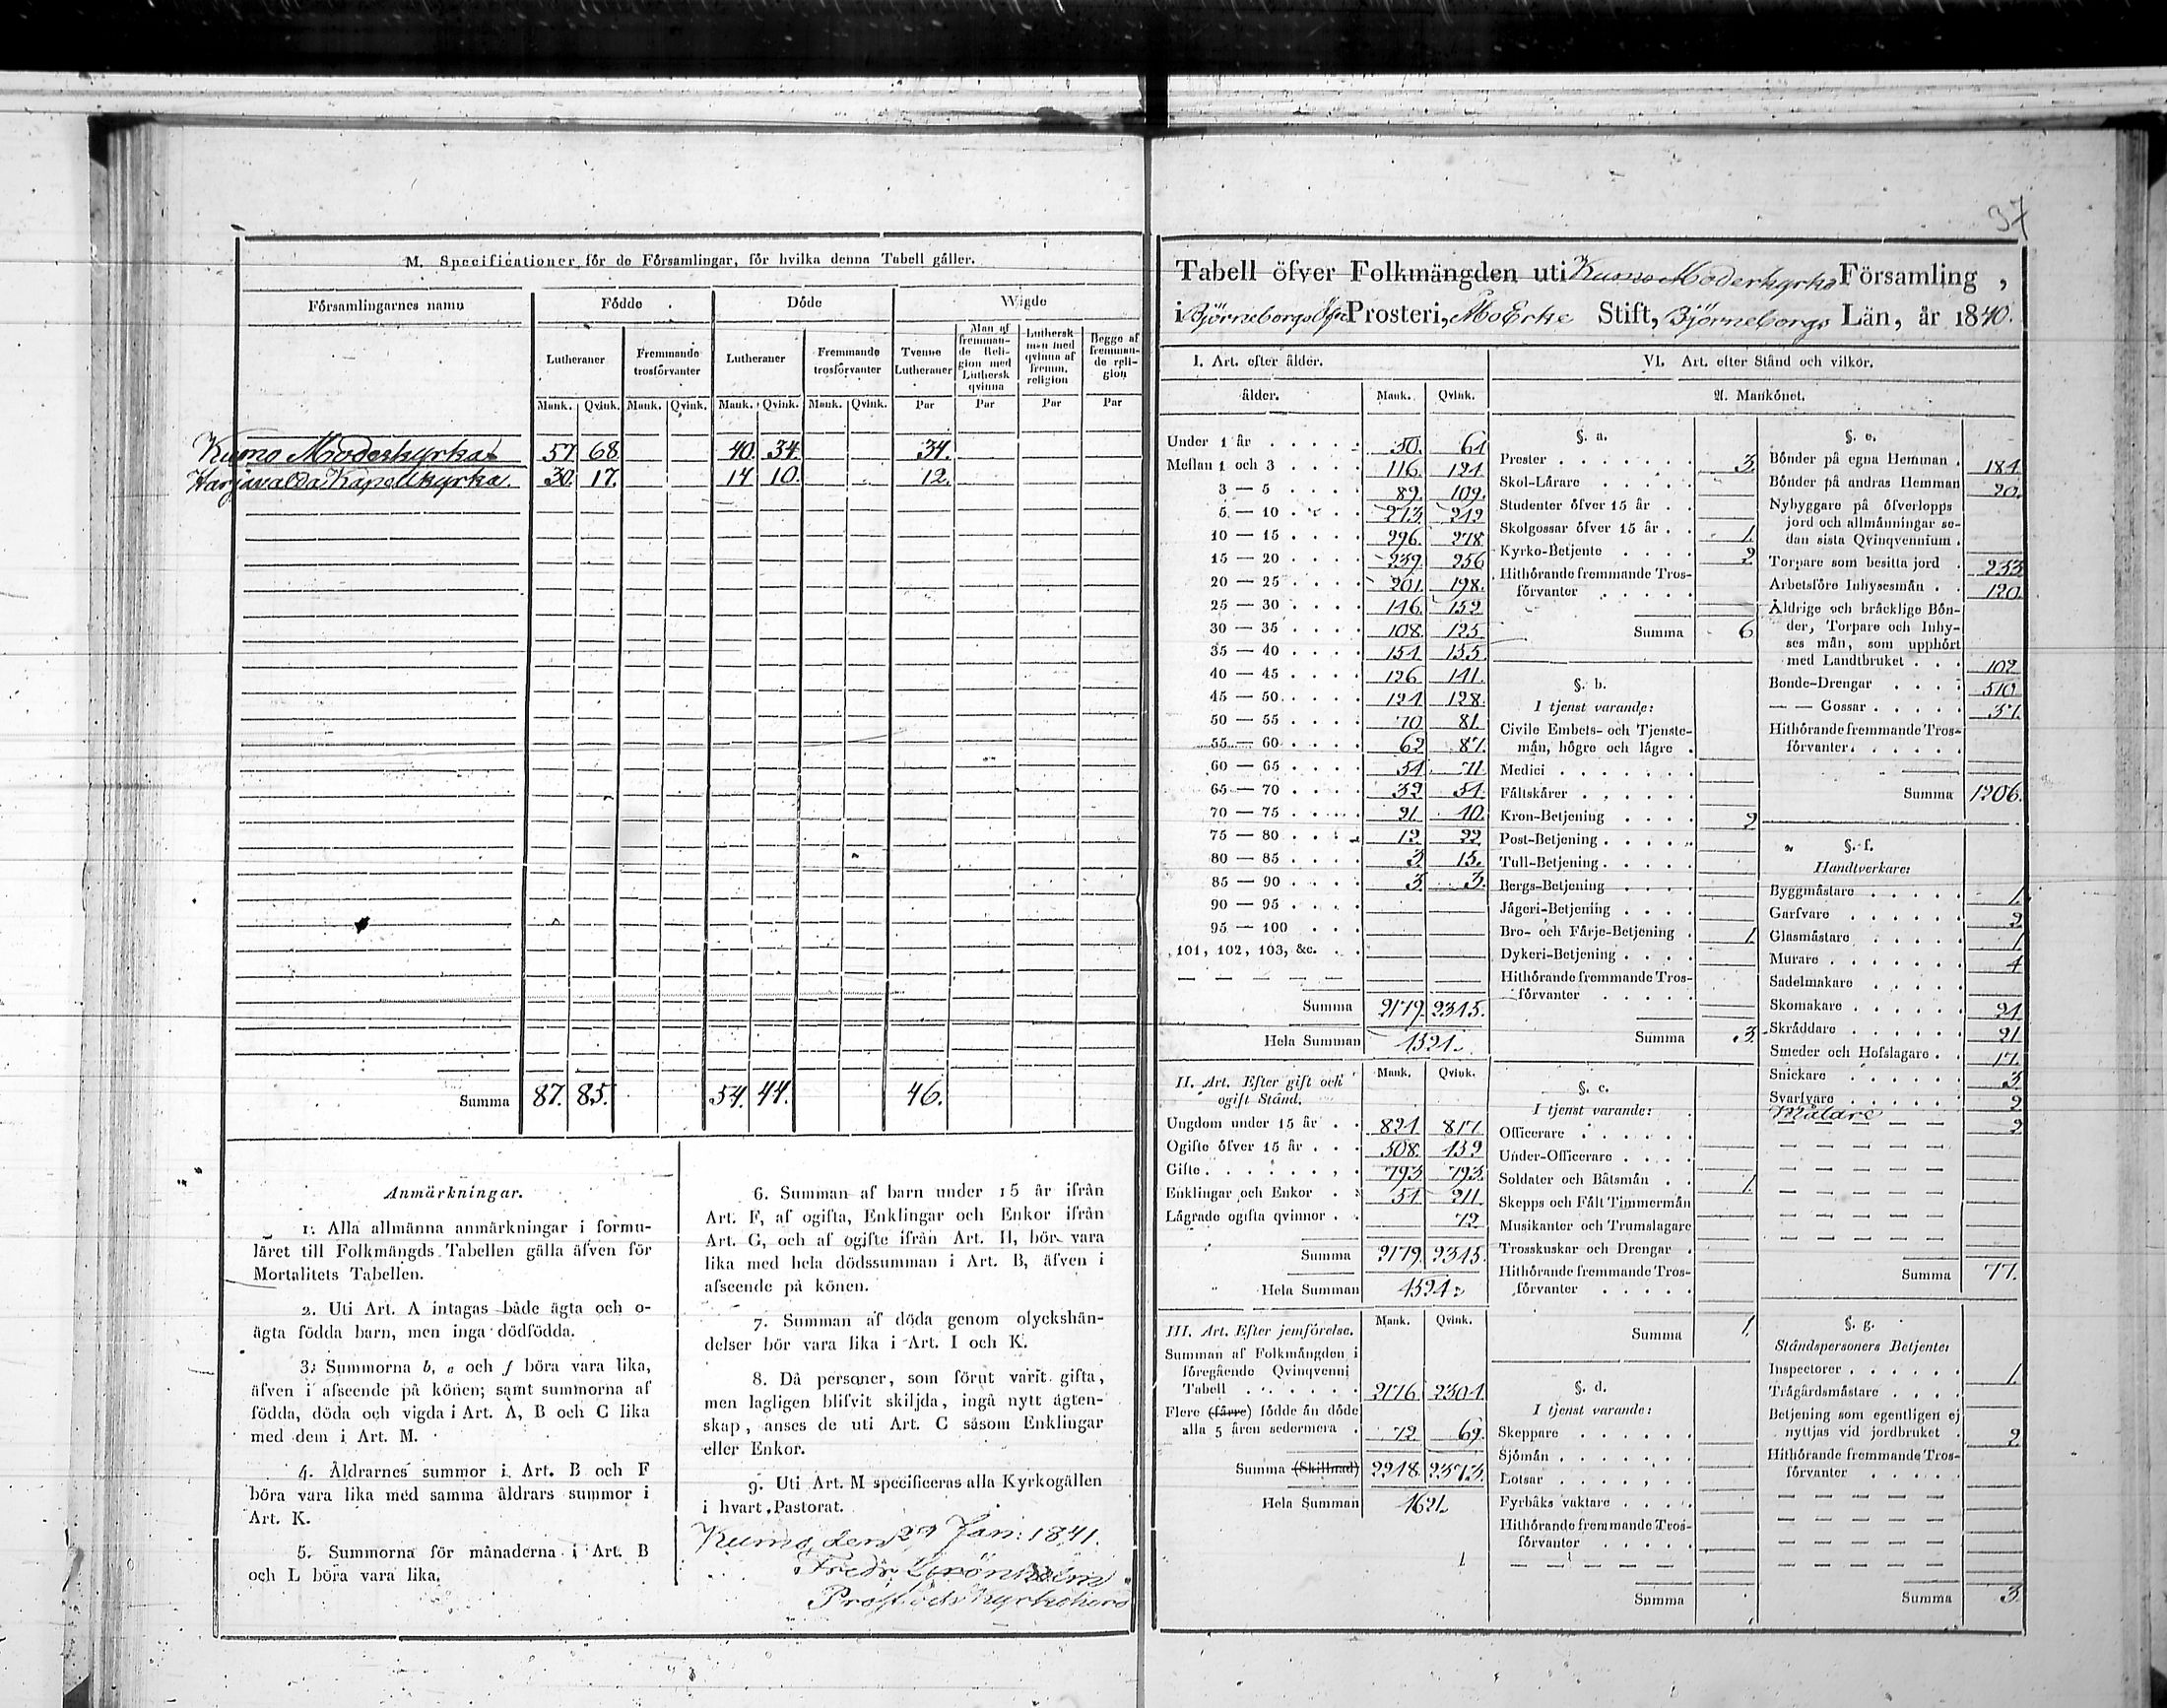 M. Specificationer för de Församlingar, för hvilka denna Tabell gäller.
Församlingarnes namn Födde Döde Wigde
Lutheraner Fremmande trosförvanter Lutheraner Fremmande trosförvanter Tvenne Lutheraner Man af fremmande Religion med Luthersk qvinna Luthersk man med qvinna af fremm. religion Begge af fremmande religion
Mank. Qvink. Mank. Qvink. Mank. Qvink. Mank. Qvink. Par Par Par Par
Kumo Moderkyrka 57 68 40. 34. 34.
Harjavalda Kapellkyrka. 30. 17. 14 10. 12.
Summa 87. 85. 54. 44. 46.
Anmärkningar.
1. Alla allmänna anmärkningar i formu-
läret till Folkmängds Tabellen gälla äfven för
Mortalitets Tabellen.
2. Uti Art. A intagas både ägta och o-
ägta födda barn, men inga dödfödda.
3. Summorna b, e och f böra vara lika,
äfven i afseende på könen; samt summorna af
födda, döda och vigda i Art. A, B och C lika
med dem i Art. M.
4. Åldrarnes summor i Art. B och F
böra vara lika med samma åldrars summor i
Art. K.
5. Summorna för månaderna i Art. B
och L böra vara lika.
6. Summan af barn under 15 år ifrån
Art. F, af ogifta, Enklingar och Enkor ifrån
Art. G, och af ogifte ifrån Art. H, bör vara
lika med hela dödssumman i Art. B, äfven i
afseende på könen.
7. Summan af döda genom olyckshän-
delser bör vara lika i Art. I och K.
8. Då personer, som förut varit gifta,
men lagligen blifvit skiljda, ingå nytt ägten-
skap, anses de uti Art. C såsom Enklingar
eller Enkor.
9. Uti Art. M specificeras alla Kyrkogällen
i hvart Pastorat.
Kumo, den 27 Jan: 1841.
Fredr.
Prost och Kyrkoherd
37
Tabell öfver Folkmängden uti Kumo Moderkyrko Församling,
i Björneborgs Prosteri, Åbo Erke Stift, Björneborgs Län, år 1840.
I. Art. efter ålder.
ålder. Mank. Qvink.
Under 1 år 50. 61
Mellan 1 och 3 116. 121
3 — 5 89. 109.
5 — 10 273. 249
10 — 15 296. 278
15 — 20 239. 256
20 — 25 201. 198.
25 — 30 146. 152
30 — 35 108. 125
35 — 40 151 155.
40 — 45 126 141.
45 — 50 121 128.
50 — 55 70 81.
55 — 60 62 87.
60 — 65 51 71
65 — 70 32 51.
70 — 75 21 40.
75 — 80 12. 22
80 — 85 3. 15.
85 — 90 3. 3.
90 — 95
95 — 100
101, 102, 103, &c.
Summa 2179. 2345.
Hela Summan 4524.
II. Art. Efter gift och ogift Stånd. Mank. Qvink.
Ungdom under 15 år 824 817
Ogifte öfver 15 år 508. 452
Gifte 793. 793.
Enklingar och Enkor 54 211.
Lägrade ogifta qvinnor 72
Summa 2179. 2345.
Hela Summan 4524.
III. Art. Efter jemförelse. Mank. Qvink.
Summan af Folkmängden i
föregående Qvinqvenni
Tabell 2176 2304
Flere (färre) födde än döde
alla 5 åren sedermera 72 69.
Summa (Skillnad) 2248. 2373.
Hela Summan 4621.
VI. Art. efter Stånd och vilkor.
A. Mankönet.
§. a.
Prester 3.
Skol-Lärare
Studenter öfver 15 år
Skolgossar öfver 15 år 1.
Kyrko-Betjente 2
Hithörande fremmande Tros-
förvanter
Summa 6
§. b.
I tjenst varande:
Civile Embets- och Tjenste-
män, högre och lägre
Medici
Fältskärer
Kron-Betjening 2
Post-Betjening
Tull-Betjening
Bergs-Betjening
Jägeri-Betjening
Bro- och Färje-Betjening 1.
Dykeri-Betjening
Hithörande fremmande Tros-
förvanter
Summa 3.
§. c.
I tjenst varande:
Officerare
Under-Officerare
Soldater och Båtsmän 1.
Skepps och Fält Timmermän
Musikanter och Trumslagare
Trosskuskar och Drengar
Hithörande fremmande Tros-
förvanter
Summa 1.
§. d.
I tjenst varande:
Skeppare
Sjömän
Lotsar
Fyrbåks vaktare
Hithörande fremmande Tros-
förvanter
Summa
§. e.
Bönder på egna Hemman 184.
Bönder på andras Hemman 20.
Nybyggare på öfverlopps
jord och allmänningar se-
dan sista Qvinqvennium
Torpare som besitta jord 233
Arbetsföre Inhysesmän 120.
Åldrige och bräcklige Bön-
der, Torpare och Inhy-
ses män, som upphört
med Landtbruket 102
Bonde-Drengar 510
— — Gossar 37.
Hithörande fremmande Tros-
förvanter
Summa 1206.
§. f.
Handtverkare:
Byggmästare 1.
Garfvare 2
Glasmästare 1
Murare 4
Sadelmakare
Skomakare 24.
Skräddare 21
Smeder och Hofslagare 17.
Snickare 3.
Svarfvare 2
Målare 2
Summa 77.
§. g.
Ståndspersoners Betjente:
Inspectorer 1.
Trägårdsmästare
Betjening som egentligen ej
nyttjas vid jordbruket 2
Hithörande fremmande Tros-
förvanter
Summa 3.